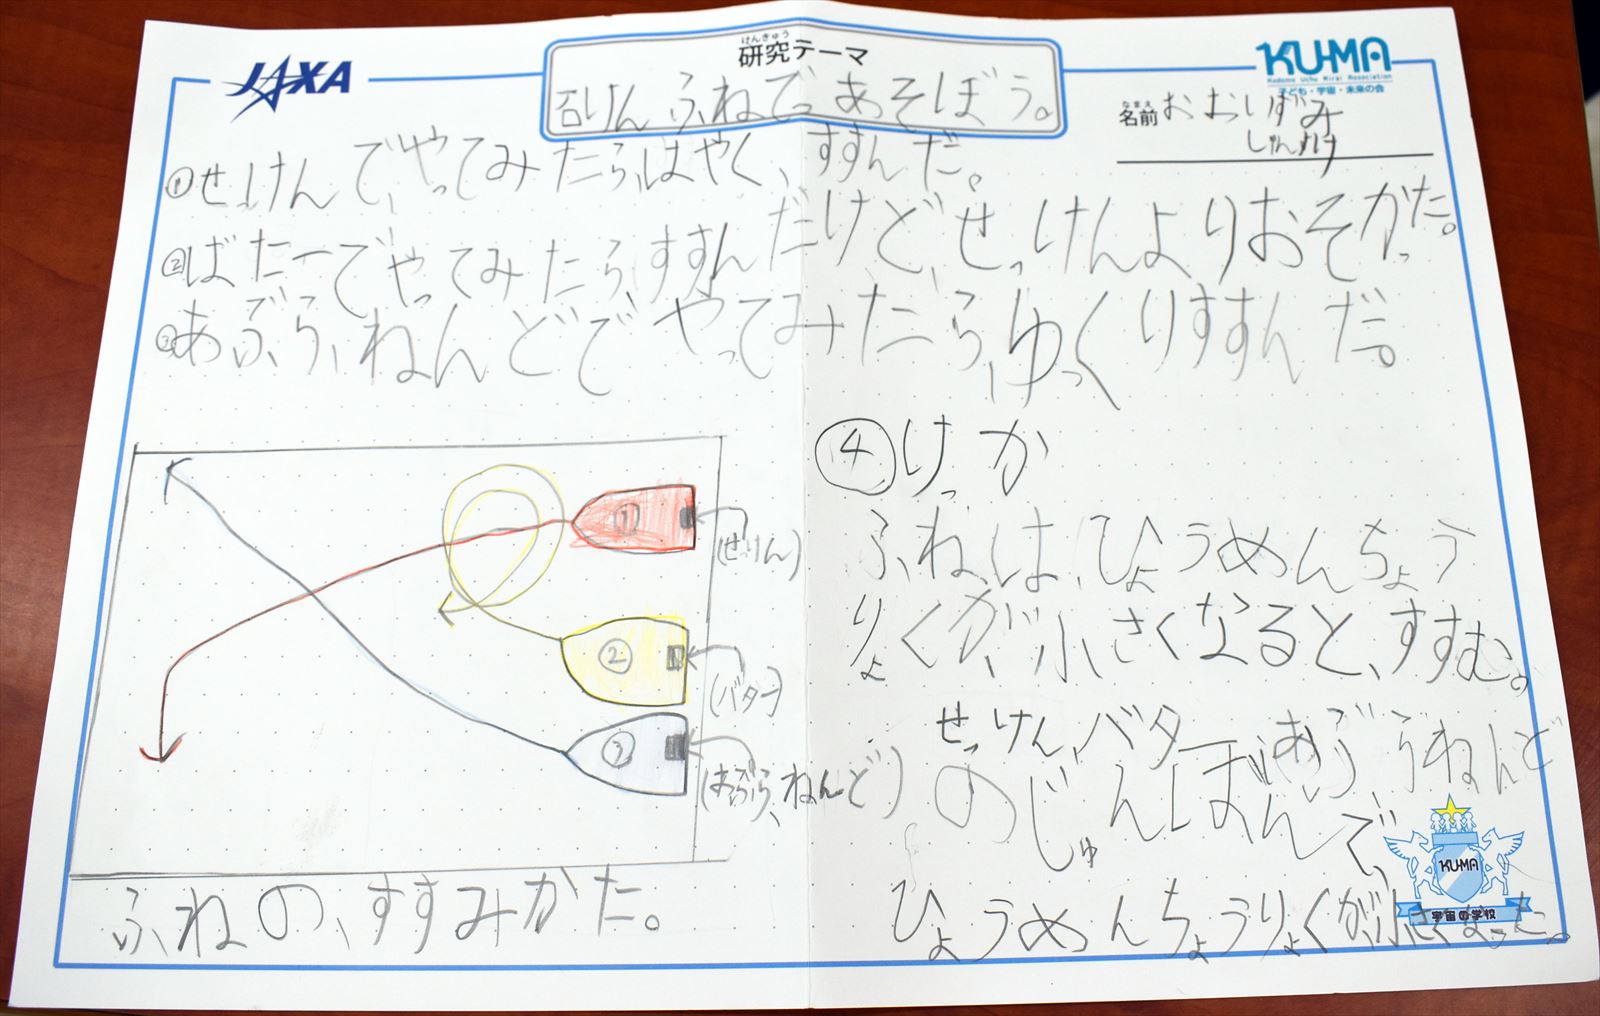 JAXA
けんきゅう
研究テーマ
石けんふねであそぼう。
KU-MA
Kodomo Uchu Mirai Association
子ども・宇宙・未来の会
なまえ
名前 おおいずみ
①せっけんで、やってみたら、はやく、すすんだ。
②ばたーでやってみたらすすんだけど、せっけんよりおそかった。
③あぶら、ねんどで、やってみたら、ゆっくりすすんだ。
④けっか
ふねは、ひょうめんちょう
りょくが、小さくなると、すすむ。
せっけん、バター、あぶらねんど
のじゅんばんで、
ひょうめんちょうりょくが、小さくなった。
①
(せっけん)
②
(バター)
③
(あぶら、ねんど)
ふねの、すすみかた。
KU-MA
宇宙の学校